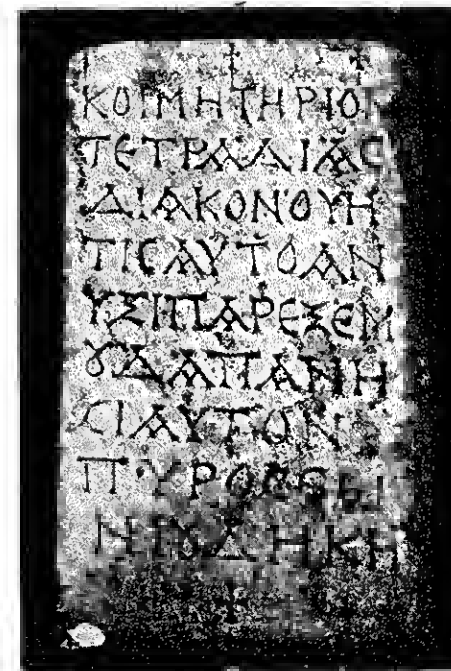 ΚΟΙΜΗΤΗΡΙΟΝ
ΤΕΤΡΑΔΙΑϹ
ΔΙΑΚΟΝΟΥΗ
ΤΙϹΑΥΤΟΑΝ
ΥΞΙΠΑΡΕΞΕΜ
ȢΔΑΠΑΝΗ
ϹΙΑΥΤΟΝ
ΠΥΡΟϹ